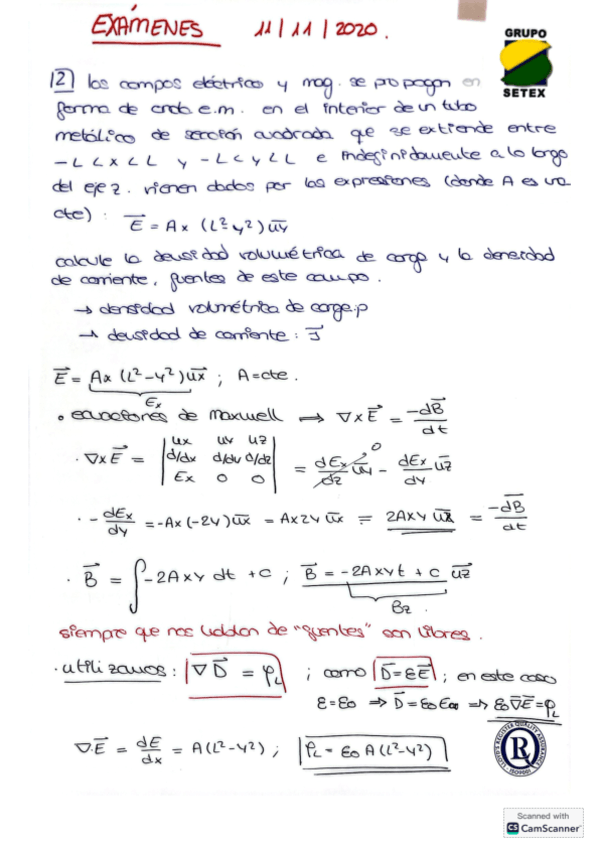 EXÁMENES 11/11/2020.
GRUPO
SETEX
12 los campos eléctrico y mag. se propagan en
forma de onda e.m. en el interior de un tubo
metálico de sección cuadrada que se extiende entre
-L<x<L y -L<y<L e indefinidamente a lo largo
del eje z. vienen dados por las expresiones (donde A es una
cte): E⃗ = Ax (L²-y²) u⃗y
calcule la densidad volumétrica de carga y la densidad
de corriente, fuentes de este campo.
→ densidad volumétrica de carga: ρ
→ densidad de corriente: J⃗
E⃗ = Ax (L²-y²) u⃗x ; A=cte.
Ex
• ecuaciones de maxwell ⟹ ∇×E⃗ = -dB⃗/dt
· ∇×E⃗ = |ux uy uz; d/dx d/dy d/dz; Ex 0 0| = dEx/dz u⃗y - dEx/dy u⃗z
0
· -dEx/dy = -Ax(-2y) u⃗x = Ax2y u⃗x = 2Axy u⃗z = -dB⃗/dt
· B⃗ = ∫-2Axy dt + c ; B⃗ = -2Axyt + c u⃗z
Bz.
siempre que nos hablan de "fuentes" son libres.
· utilizamos: ∇D⃗ = ρL ; como D⃗=εE⃗ ; en este caso
ε=ε0 ⟹ D⃗=ε0 ⟹ ε0∇E⃗=ρL
∇·E⃗ = dE/dx = A(L²-y²) ; ρL = ε0 A(L²-y²)
LLOYD'S REGISTER QUALITY ASSURANCE
R
ISO9001
Scanned with
CS CamScanner